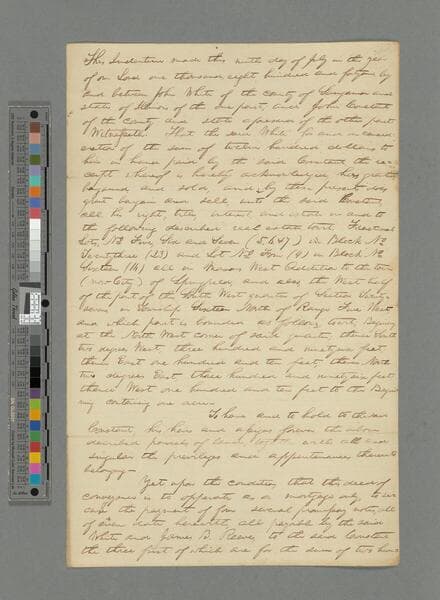 This Indenture made this ninth day of July in the year
of our Lord one thousand eight hundred and by
and between John White of the county of Sangamon and
state of Illinois of the one part, and John Constant
of the County and state aforesaid of the other part
Witnesseth: That the said White for and in consid-
eration of the sum of twelve hundred dollars to
him in hand paid by the said Constant the re-
ceipt whereof is hereby acknowledged, has granted
bargained and sold, and by these presents does
grant bargain and sell unto the said Constant,
all his right, title interest and estate in and to
the following described real estate towit. Fractional
Lots, No Five, Six and Seven (5.6.&7) in Block No
Twenty three (23) and Lot No Four (4) in Block No
(14) all in West Addition to the town
(now City) of Springfield and also the West half
of the part of the North West quarter of Section Twenty
seven in Township Sixteen North of Range Five West
and which part is bounded as follows towit, Beginning
at the North West corner of said quarter, thence South
two degrees West three hundred and ninety six feet
thence East one hundred and ten feet, thence North
two degrees East three hundred and ninety six feet
thence West one hundred and ten feet to the Begin
ning containing one acre-
To have and to hold to the said
Constant his heirs and assigns forever the above
described parcels of land, together with all and
singular the privileges and appurtenances thereunto
belonging-
Yet upon the condition, that this deed of
conveyance is to opperate as a mortgage only, to se
cure the payment of four several promissory notes, all
of even date herewith, all payable by the said
White and James B. Reeves, to the said Constant
the three first of which are for the sum of two hund